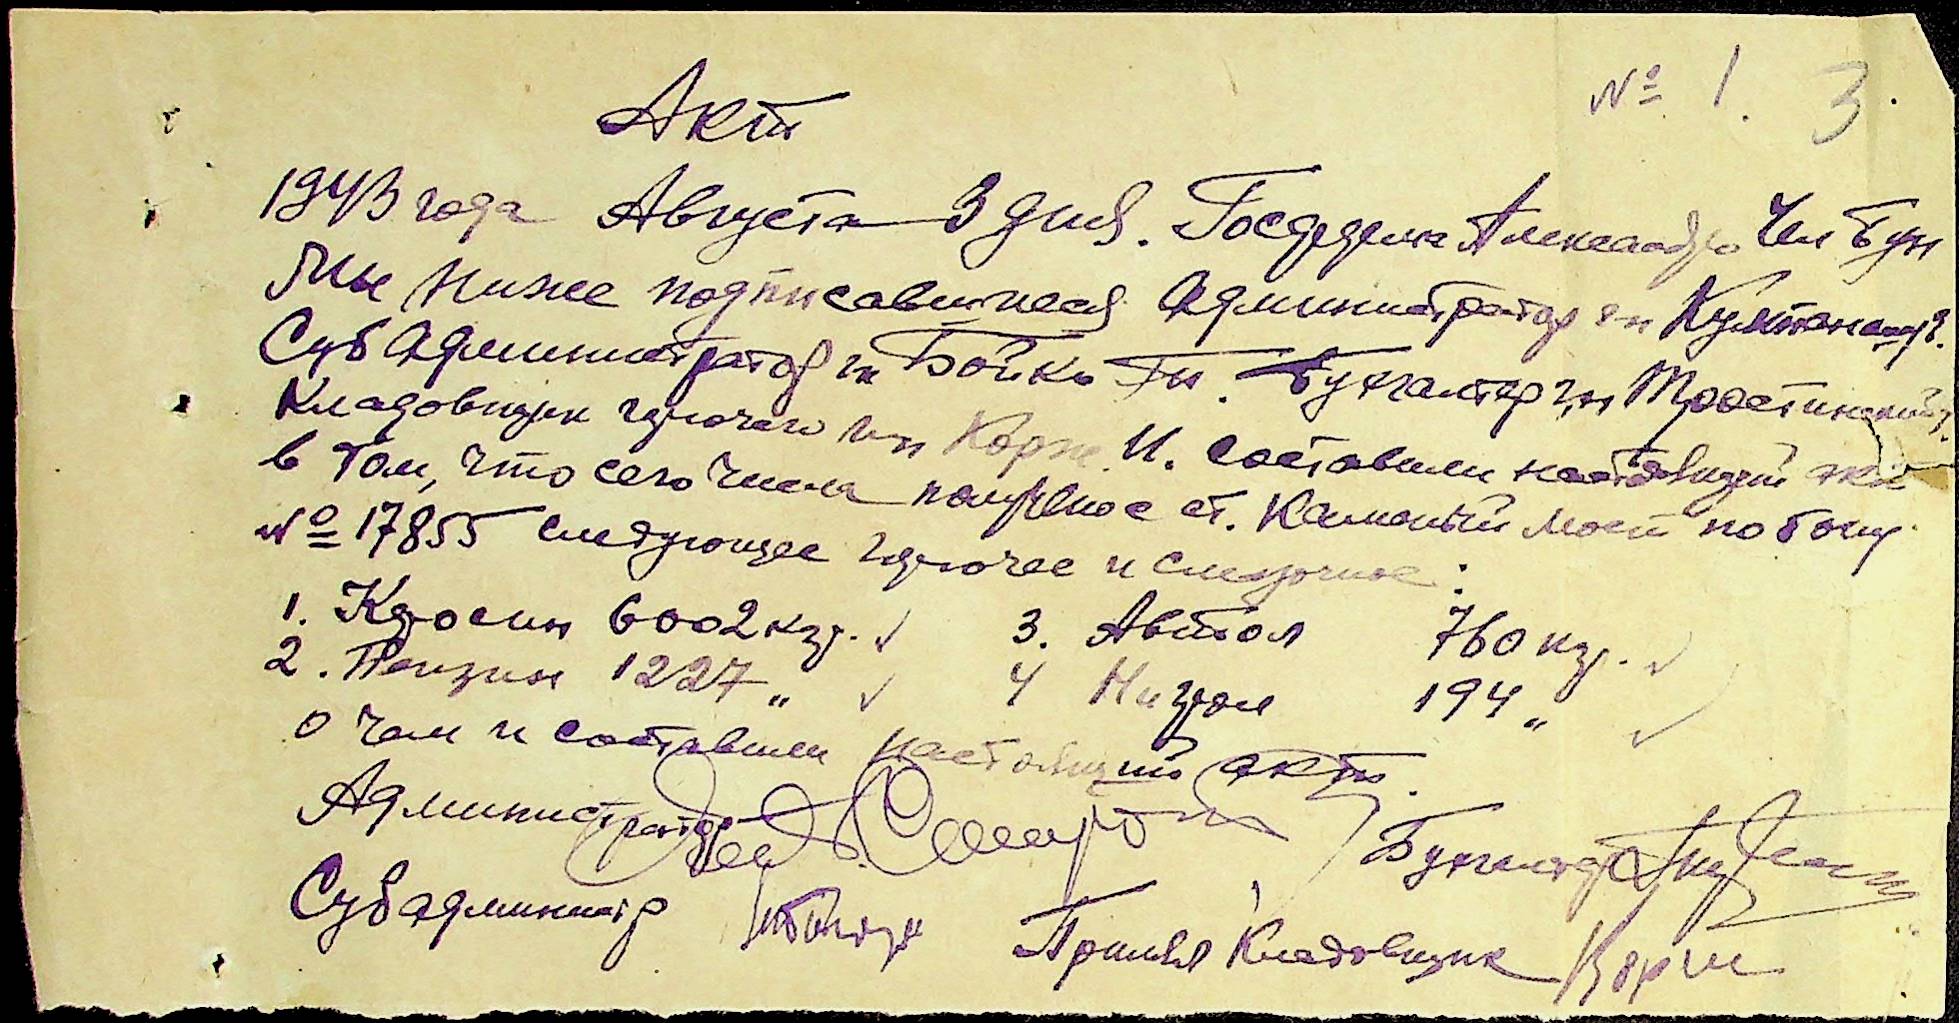 № 1. 3.
Акт
1943 года Августа 3 дня. Госферма Александро
Мы ниже подписавшиеся Администратор гн
Субадминистратор гн Бойко Гн. Бухгалтер гн
Кладовщик горючего гн Корж И. составили настоящий акт
в том, что сего числа получено с ст. Каменый мост по бону
№ 17855 следующее горючее и смазочное:
1. Керосин 6002 кгр. ✓ 3. Автол 760 кгр. ✓
2. Бензин 1227 „ ✓ 4 Нигрол 194 „ ✓
о чем и составили настоящий акт.
Администратор Бухгалтер
Субадминистр Принял Кладовщик Корж